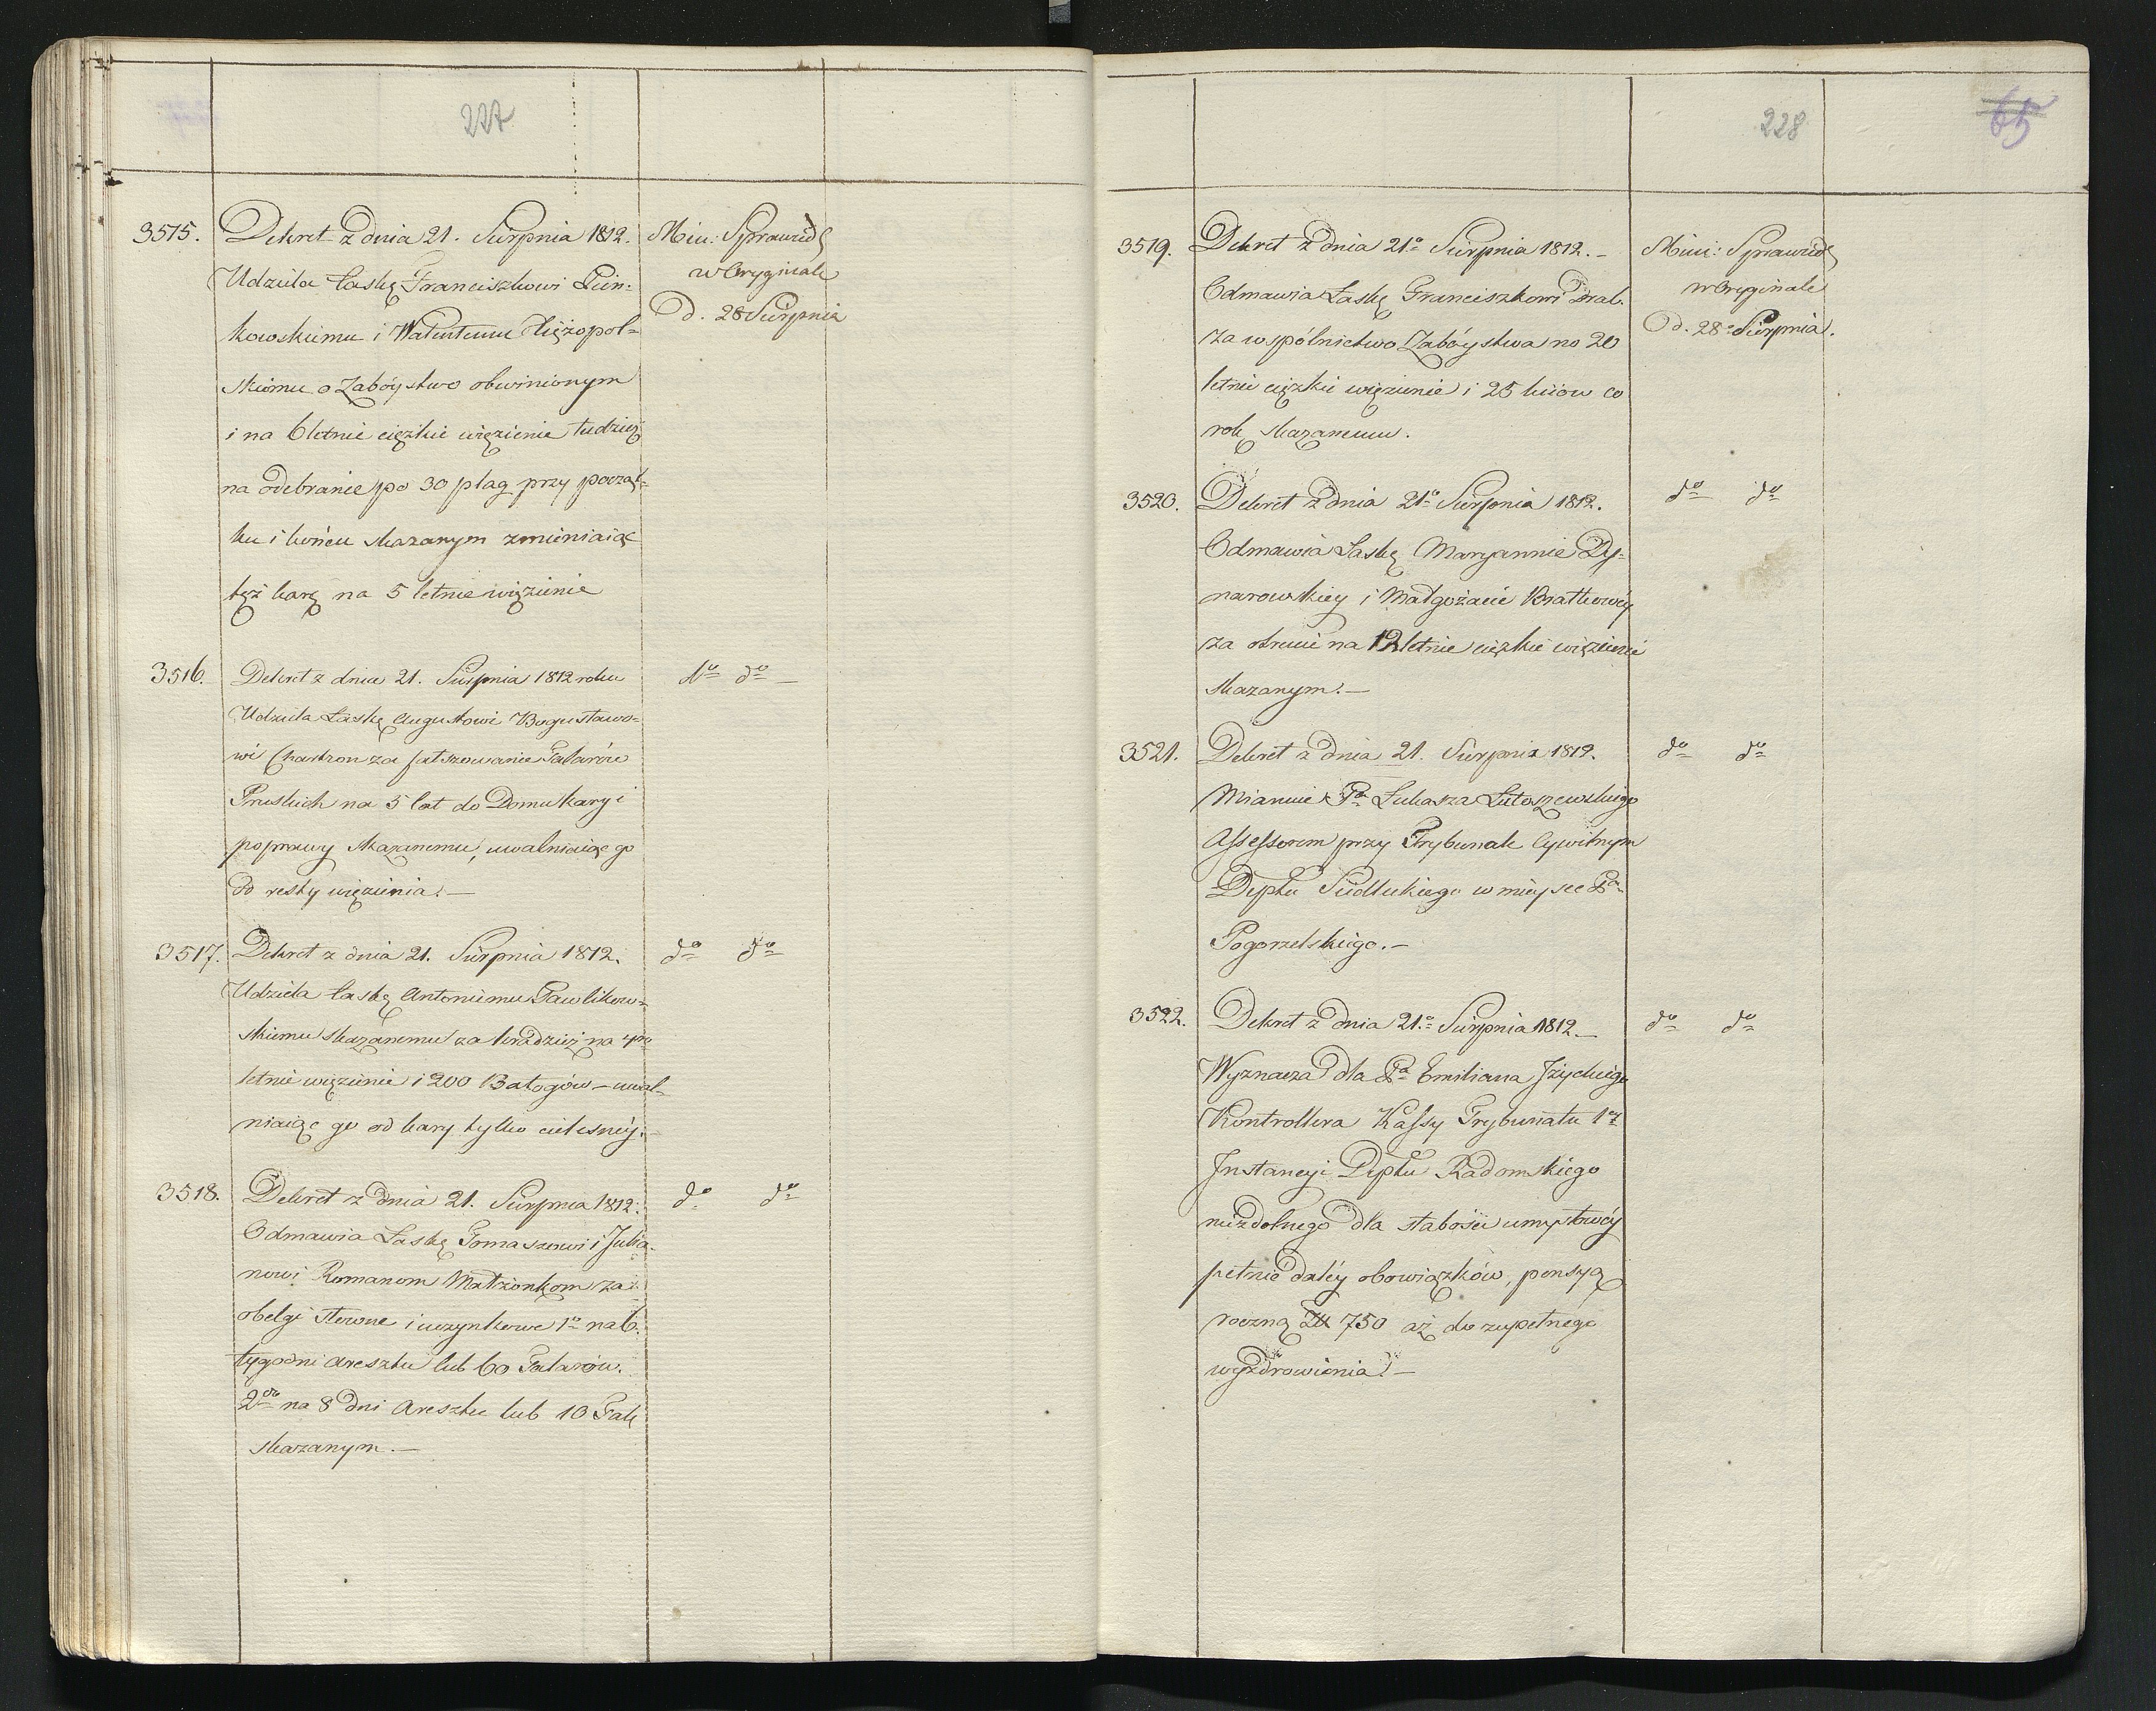 227
3515. Dekret z dnia 21. Sierpnia 1812. Min: Sprawied
Udziela łaskę Franciszkowi Pień= w Oryginale
kowskiemu i Walentemu Księżopol= D. 28 Sierpnia
skiemu o Zabóystwo obwinionym
i na 6 letnie ciężkie więzienie tudzież
na odebranie po 30 plag przy począt=
ku i końcu skazanym zmieniaiąc
tęż karę na 5 letnie więzienie
3516. Dekret z dnia 21. Sierpnia 1812 roku do do —
Udziela Łaskę Augustowi Bogusławo=
wi Chartron za fałszowanie Talarów
Pruskich na 5 lat do Domu kary i
poprawy skazanemu, uwalniaiąc go
od reszty więzienia. —
3517. Dekret z dnia 21. Sierpnia 1812. do do
Udziela łaskę Antoniemu Pawlikow=
skiemu skazanemu za kradzież na 4ro
letnie więzienie i 200 Batogów — uwal=
niaiąc go od kary tylko cielesnéy. —
3518. Dekret z dnia 21. Sierpnia 1812. do do
Odmawia Łaskę Tomaszowi i Julia=
nowi Romanom Małżonkom za
obelgi słowne i uczynkowe 1o na 6.
tygodni aresztu lub 60 Talarów.
2do na 8 dni Aresztu lub 10 Tal:
skazanym. —
228
65
3519. Dekret z dnia 21o Sierpnia 1812. — Mini: Sprawied
Odmawia Łaskę Franciszkowi Dral. w Oryginale
za wspólnictwo Zabóystwa na 20 D. 28o Sierpnia.
letnie ciężkie więzienie i 25 kiiów co
rok skazanemu.
3520. Dekret z dnia 21o Sierpnia 1812. do do
Odmawia Łaskę Maryannie Dy=
narowskiey i Małgożacie Bratkowéy
za otrucie na 12 letnie ciężkie więzienie
skazanym. —
3521. Dekret z dnia 21. Sierpnia 1812. do do
Mianuie Pa Łukasza Lutoszewskiego
Assessorem przy Trybunale Cywilnym
Deptu Siedleckiego w mieysce Pa
Pogorzelskiego. —
3522. Dekret z dnia 21o Sierpnia 1812. — do do
Wyznacza dla Pa Emiliana Iżyckiego
Kontrollera Kassy Trybunału 1ey
Instancyi Deptu Radomskiego
niezdolnego dla słabości umysłowéy
pełnić daléy obowiązków, pensyą
roczną Zł 750 aż do zupełnego
wyzdrowienia. —